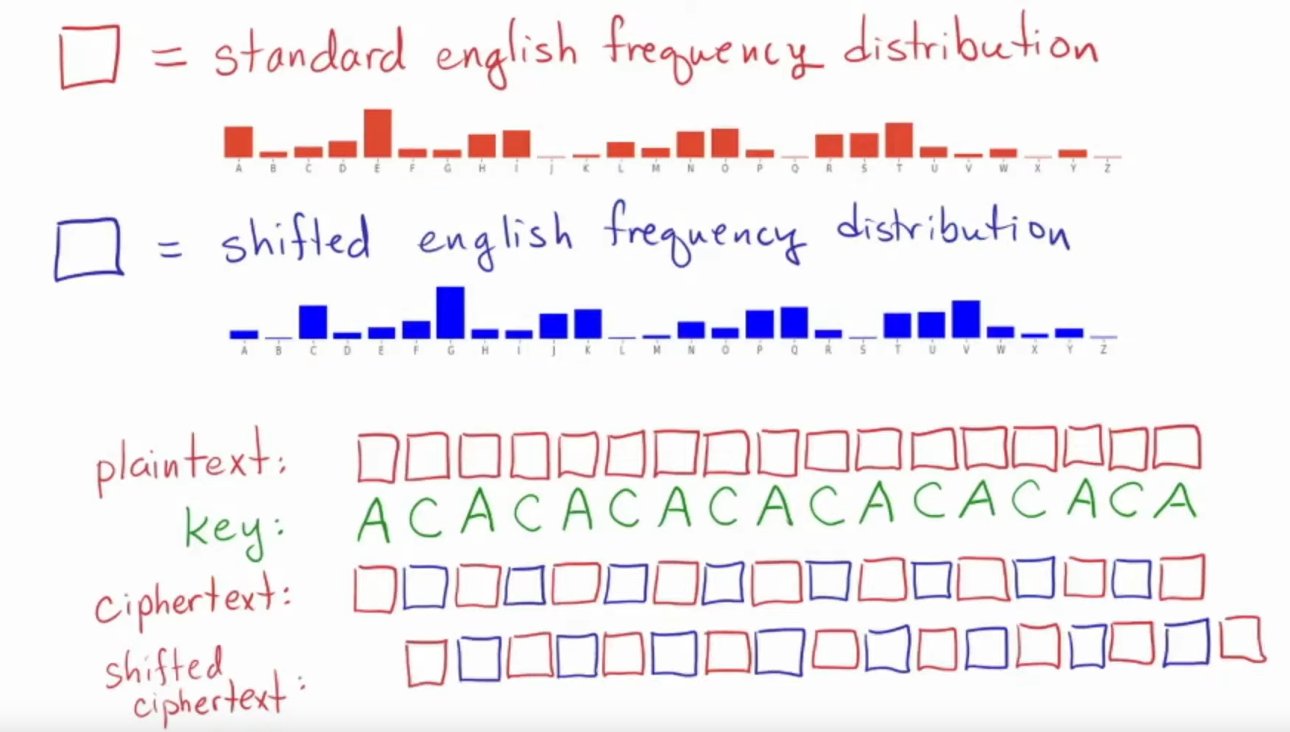 = standard english frequency distribution
A B C D E F G H I J K L M N O P Q R S T U V W X Y Z
= shifted english frequency distribution
A B C D E F G H I J K L M N O P Q R S T U V W X Y Z
plaintext:
key: A C A C A C A C A C A C A C A C A
ciphertext:
shifted
ciphertext: